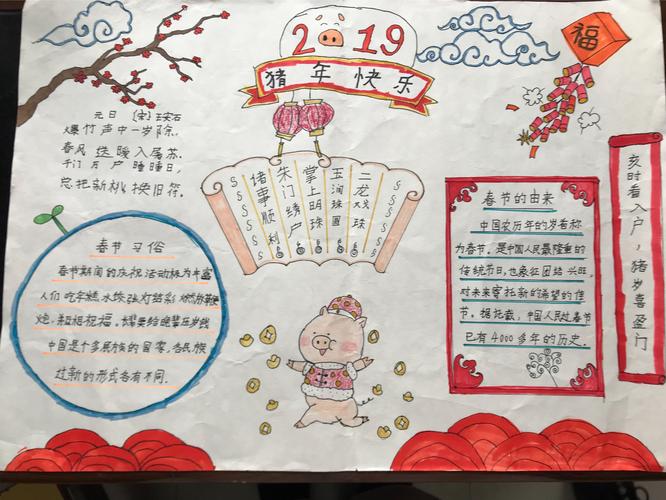 2019
猪年快乐
福
元日 〔宋〕王安石
爆竹声中一岁除,
春风送暖入屠苏.
千门万户曈曈日,
总把新桃换旧符.
二龙戏珠
玉润珠圆
掌上明珠
朱门绣户
诸事顺利
春节习俗
春节期间的庆祝活动极为丰富
人们吃年糕水饺张灯结彩燃放鞭
炮,互相祝福,长辈要给晚辈压岁钱
中国是个多民族的国家,各民族
过新的形式各有不同.
春节的由来
中国农历年的岁首称
为春节,是中国人民最隆重的
传统节日,也象征团结兴旺,
对未来寄托新的希望的佳
节。据记载,中国人民过春节
已有4000多年的历史.
亥时看入户,猪岁喜盈门